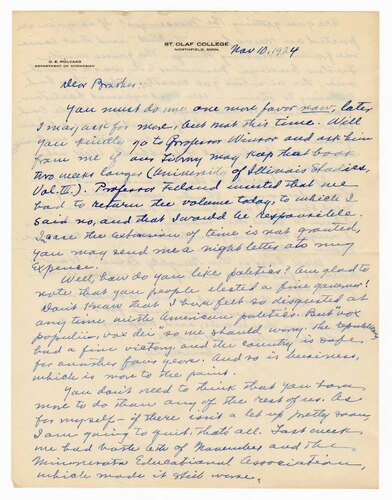 ST. OLAF COLLEGE
NORTHFIELD, MINN.
O. E. RÖLVAAG
DEPARTMENT OF NORWEGIAN
Nov 10, 1924
Dear Brother:
You must do me one more favor now, later
I may ask for more, but not this time. Will
you kindly go to Professor Windsor and ask him
from me if our Library may keep that book
two weeks longer (University of Illinois Studies,
Vol. IV.). Professor Felland insisted that we
had to return the volume today, to which I
said no, and that I would be responsible.
In case the extension of time is not granted,
you may send me a night letter at my
expense.
Well, how do you like politics? Am glad to
note that you people elected a fine governor!
Don't know that I have felt so disgusted at
any time with American politics. But "vox
populi, vox dei" so we should worry. The republicans
had a fine victory, and the country is safe
for another four years. And so is business,
which is more to the point.
You don't need to think that you have
more to do than any of the rest of us. As
for myself – if there isn't a let up pretty soon
I am going to quit, that's all. Last week
we had both 6th of November and the
Minnesota Educational Association,
which made it still worse.